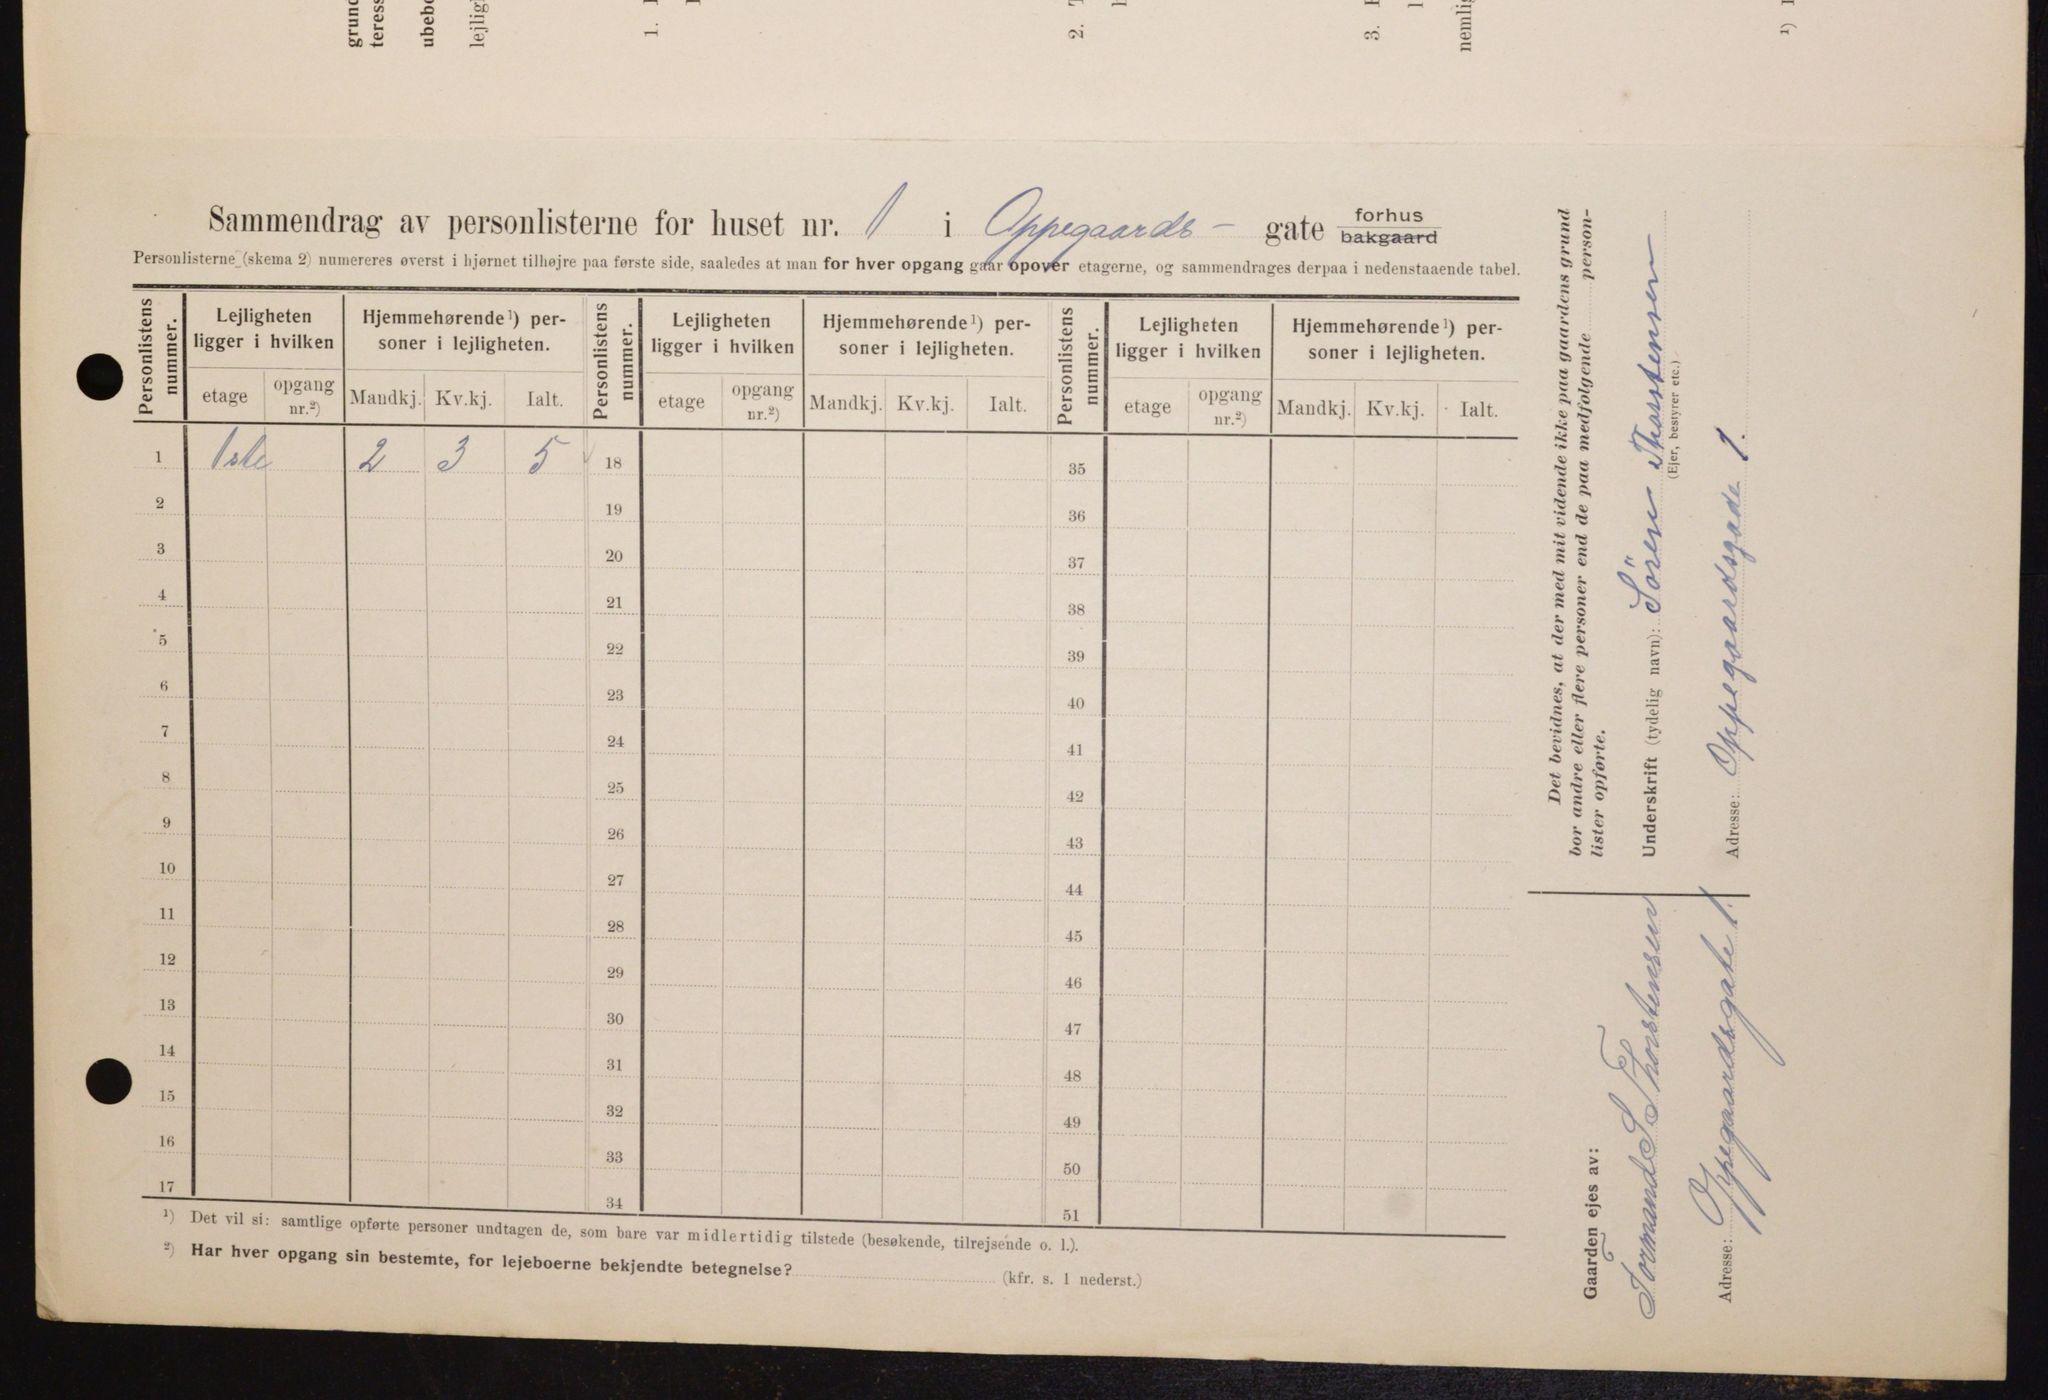 grund
teress
ubebo
lejligh
1.
2.
3.
nemlig
1)
Sammendrag av personlisterne for huset nr. 1 i Oppegaards- gate forhus bakgaard
Personlisterne (skema 2) numereres øverst i hjørnet tilhøjre paa første side, saaledes at man for hver opgang gaar opover etagerne, og sammendrages derpaa i nedenstaaende tabel.
Personlistens nummer. Lejligheten ligger i hvilken Hjemmehørende 1) personer i lejligheten. Personlistens nummer. Lejligheten ligger i hvilken Hjemmehørende 1) personer i lejligheten. Personlistens nummer. Lejligheten ligger i hvilken Hjemmehørende 1) personer i lejligheten.
etage opgang nr.2) Mandkj. Kv.kj. Ialt. etage opgang nr.2) Mandkj. Kv.kj. Ialt. etage opgang nr.2) Mandkj. Kv.kj. Ialt.
1 1ste 2 3 5 18 35
2 19 36
3 20 37
4 21 38
5 22 39
6 23 40
7 24 41
8 25 42
9 26 43
10 27 44
11 28 45
12 29 46
13 30 47
14 31 48
15 32 49
16 33 50
17 34 51
1) Det vil si: samtlige opførte personer undtagen de, som bare var midlertidig tilstede (besøkende, tilrejsende o. l.).
2) Har hver opgang sin bestemte, for lejeboerne bekjendte betegnelse? (kfr. s. 1 nederst.)
Det bevidnes, at der med mit vidende ikke paa gaardens grund
bor andre eller flere personer end de paa medfølgende person-
lister opførte.
Underskrift (tydelig navn): Sören Thorstensen
(Ejer, bestyrer etc.)
Adresse: Oppegaardsgade 1.
Gaarden ejes av:
Formand S Thorstensen
Adresse: Oppegaardsgate 1.